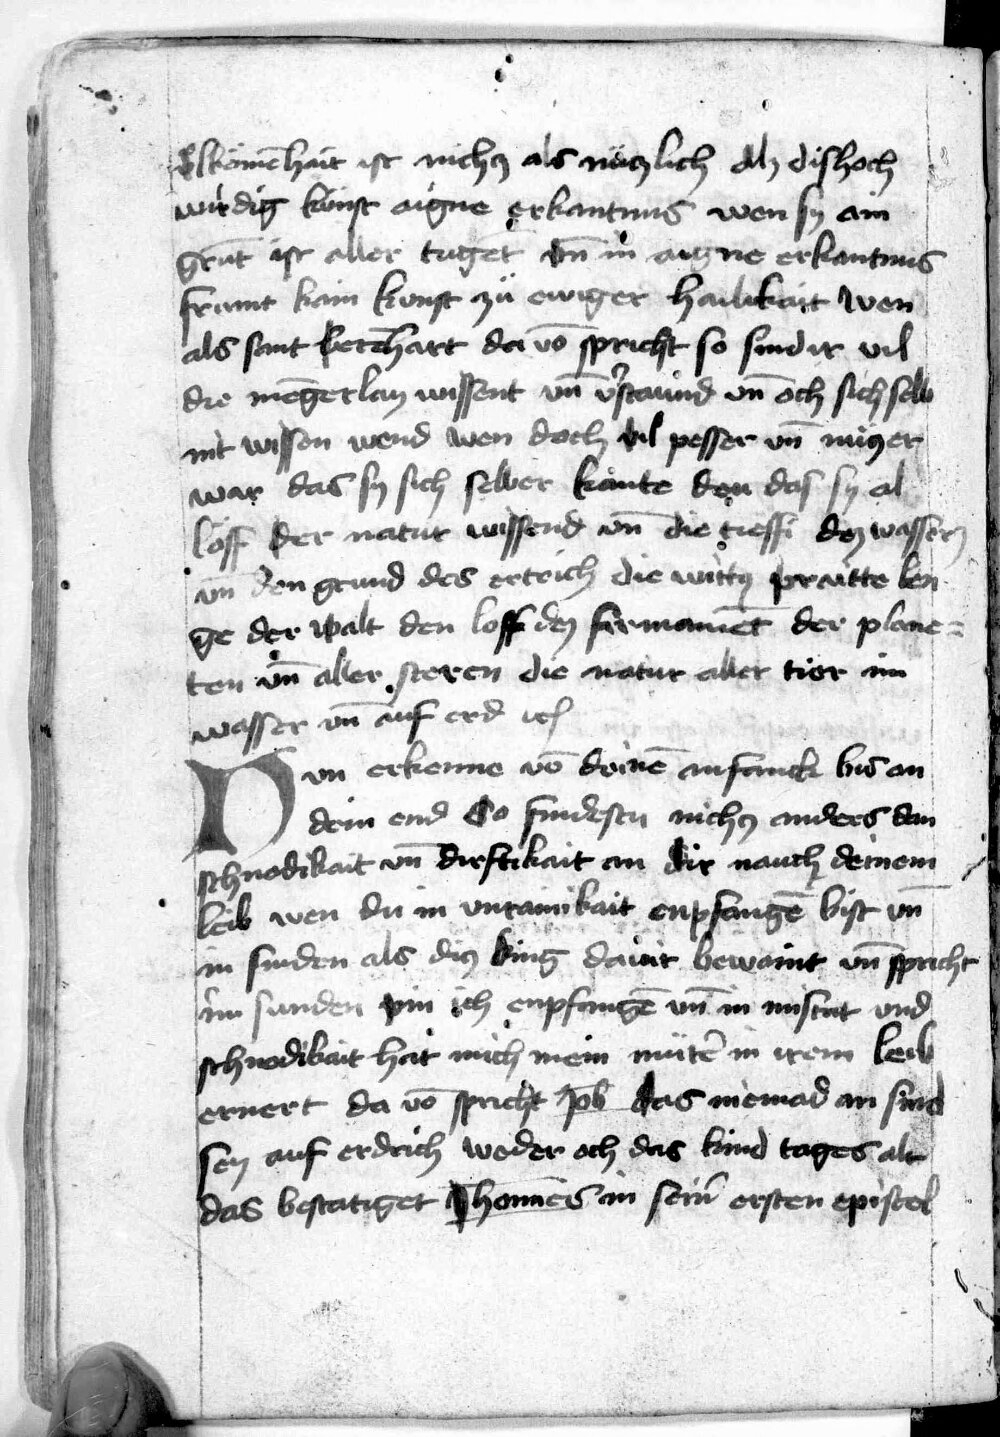 volkömēhait ist nichcz als nüczlich als dis hoch
wirdig kúnst aigne erkantnus wen sy ain
grūt ist aller tugēt vn̄ in aigne erkantnus
frumt kain kunst zü ewiger hailikait wen
als sant bernhart da vō spricht so sind ir vil
die mēgerlay wissent vn̄ v̉staund vn̄ och sich selb
nit wissen wend wen doch vil pesser vn̄ nüczer
war das sy sich selber kante den das sy al
löff der natur wissend vn̄ die tieffi des wassers
vn̄ den grund des ertrich die witty praitte len
ge der walt den loff des firmamēt der plane=
ten vn̄ aller steren die natur aller tier im
wasser vn̄ auf erd ic
Nun erkenne vō deinē anfanck bis an
dein end so findestu nichcz anders den
schnodikait vn̄ dirftikait an dir nauch deinem
leib wen du in vnrainikait enpfangē bist vn̄
in sinden als dicz king dauit bewaint vn̄ spricht
in sunden pin ich enpfangē vn̄ in mistat vnd
schnodikait hat mich mein mütē in irem leib
ernert da vō spricht Job das niemad an sind
sey auf erdrich weder och das kind tages alt
das bestatiget Johannes in seinē ersten epistel